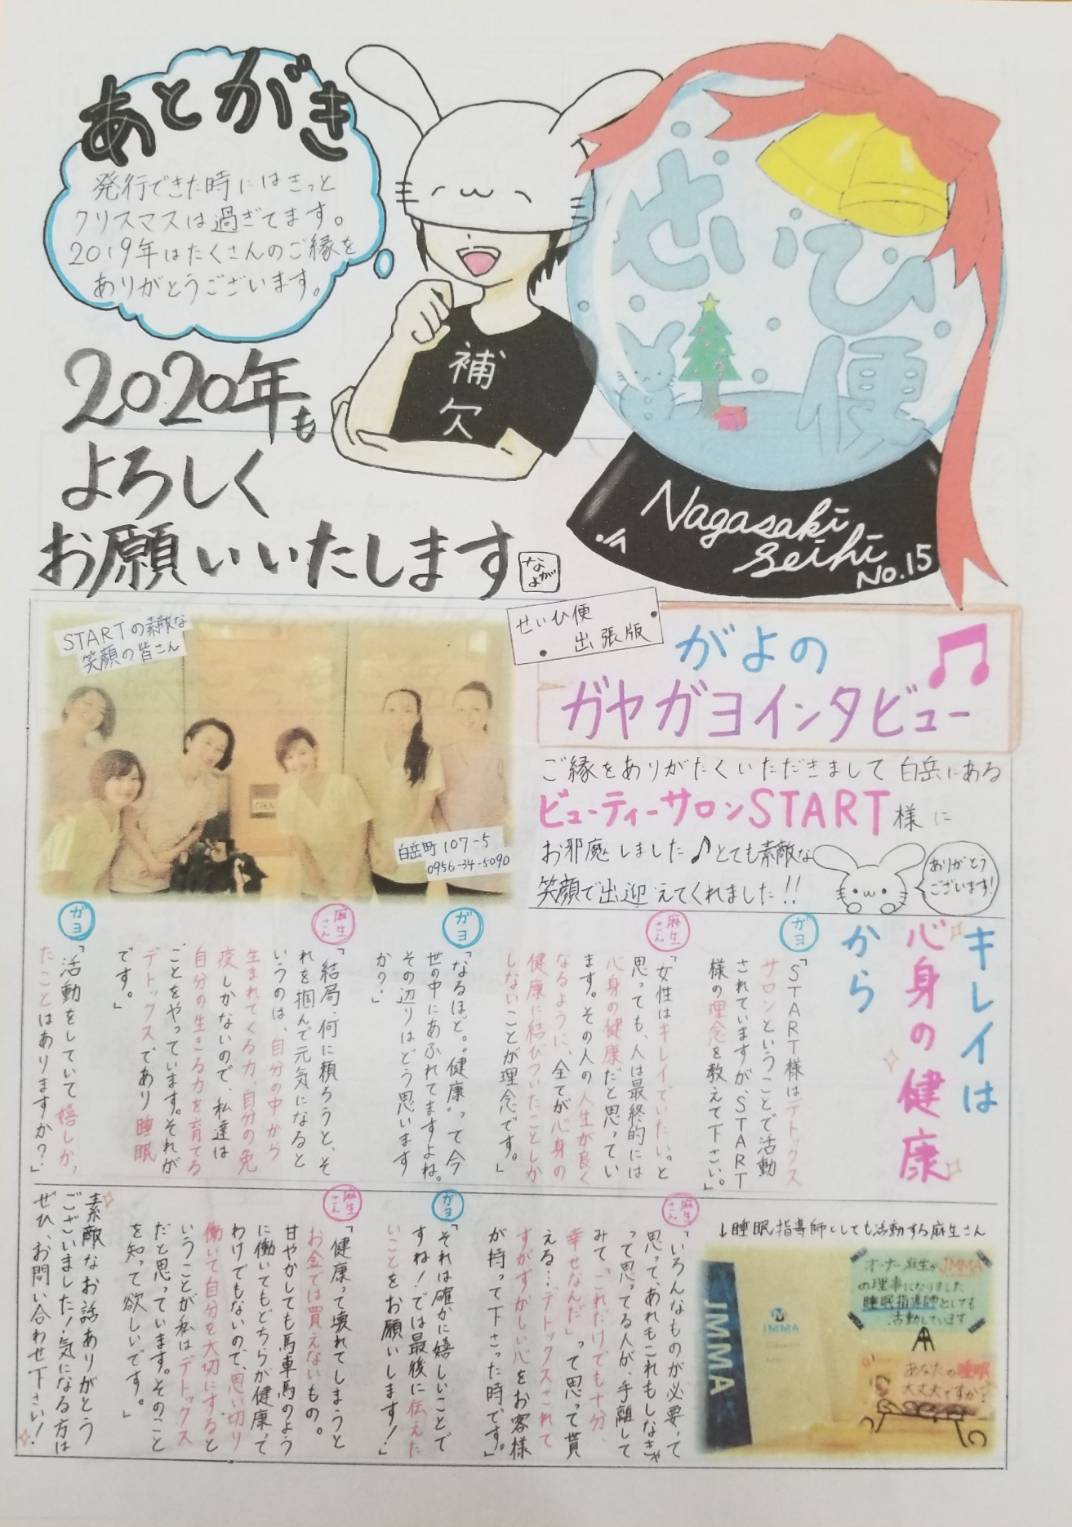 あとがき
発行できた時にはきっと
クリスマスは過ぎてます。
2019年はたくさんのご縁を
ありがとうございます。
2020年も
よろしく
お願いいたします
ながよ
補欠
せいひ便
Nagasaki
Seihi
No.15
STARTの素敵な
笑顔の皆さん
白岳町107-5
0956-34-5090
せいひ便
出張版
がよの
ガヤガヨインタビュー
ご縁をありがたくいただきまして白岳にある
ビューティーサロンSTART様に
お邪魔しました♪とても素敵な
笑顔で出迎えてくれました!!
ありがとう
ございます!
キレイは
心身の健康
から
ガヨ
「START様はデトックス
サロンということで活動
されていますが、START
様の理念を教えて下さい。」
麻生さん
「女性はキレイでいたい。と
思っても、人は最終的には
心身の健康だと思ってい
ます。その人の人生が良く
なるように、全てが心身の
健康に結びついたことしか
しないことが理念です。」
ガヨ
「なるほど。"健康"って今
世の中にあふれてますよね。
その辺りはどう思います
か?」
麻生さん
「結局、何に頼ろうと、そ
れを掴んで元気になると
いうのは、自分の中から
生まれてくる力、自分の免
疫しかないので、私達は
自分の生きる力を育てる
ことをやっています。それが
デトックスであり睡眠
です。」
ガヨ
「活動をしていて嬉しか
たことはありますか?」
↓睡眠指導師としても活動する麻生さん
JMMA
JMMA
オーナー麻生がJMMA
の理事になりました
睡眠指導師としても
活動しています
あなたの睡眠
大丈夫ですか?
麻生さん
「いろんなものが必要って
思って、あれもこれもしなきゃ
って思ってる人が、手離して
みて、"これだけでも十分、
幸せなんだ"って思って貰
える…デトックスされて
すがすがしい心をお客様
が持って下さった時です。」
ガヨ
「それは確かに嬉しいことで
すね!では最後に伝えた
いことをお願いします!」
麻生さん
「健康って壊れてしまうと
お金では買えないもの。
甘やかしても馬車馬のよう
に働いてもどちらが健康って
わけでもないので、思い切り
働いて自分を大切にすると
いうことが私はデトックス
だと思っています。そのこと
を知って欲しいです。」
素敵なお話ありがとう
ございました!気になる方は
ぜひ、お問い合わせ下さい!